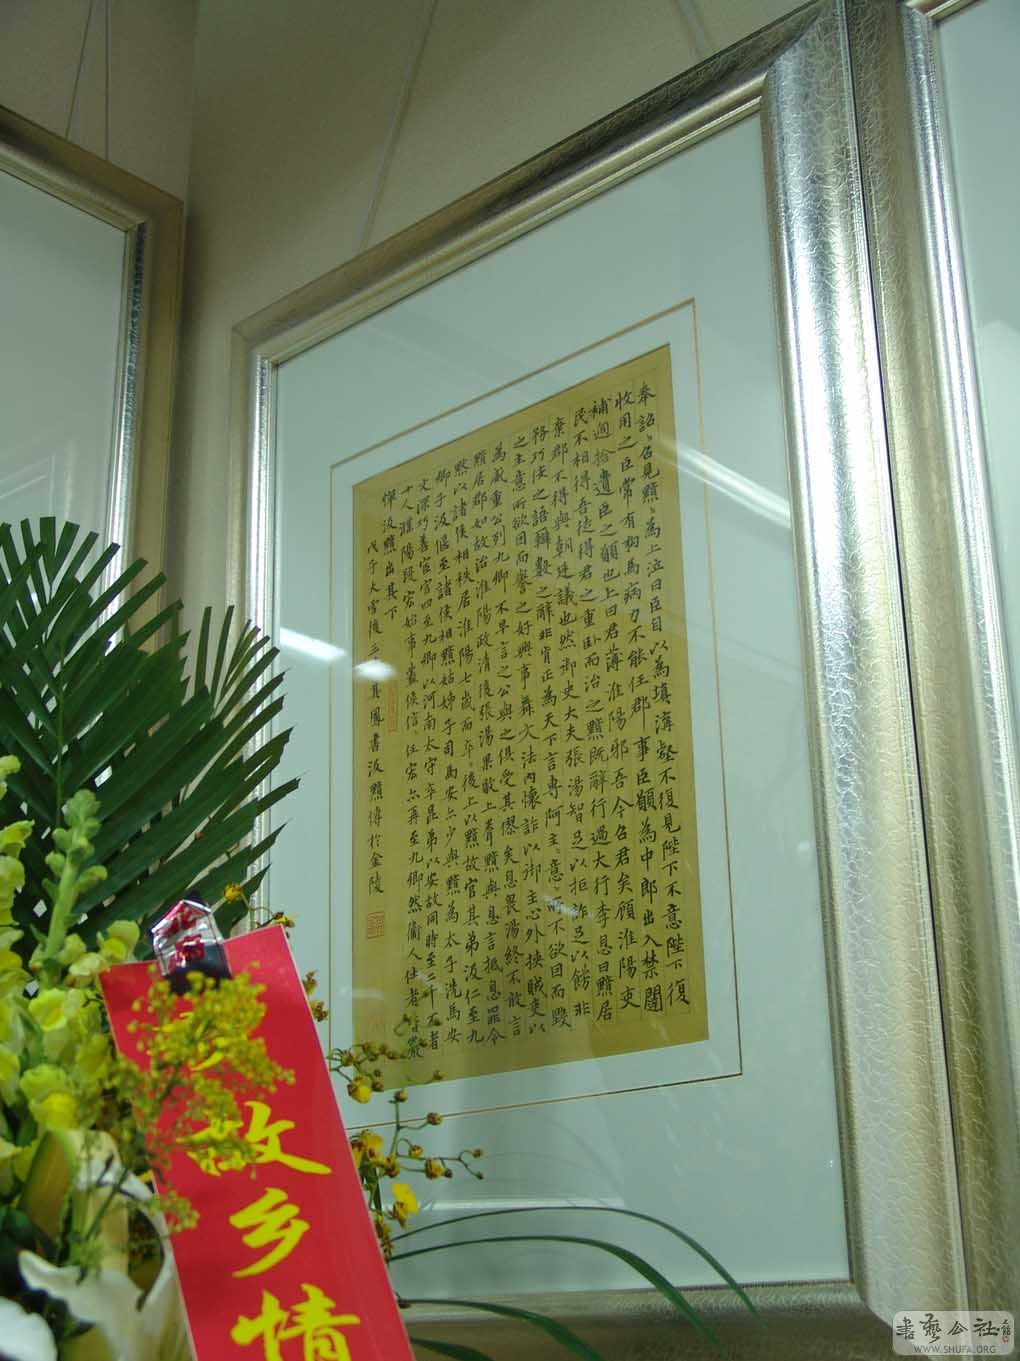 奉詔詔召見黯黯為上泣曰臣自以為填溝壑不復見陛下不意陛下復
收用之臣常有狗馬病力不能任郡事臣願為中郎出入禁闥
補過拾遺臣之願也上曰君薄淮陽邪吾今召君矣顧淮陽吏
民不相得吾徒得君之重臥而治之黯既辭行過大行李息曰黯居
棄郡不得與朝廷議也然御史大夫張湯智足以拒諫詐足以飾非
務巧佞之語辯數之辭非肯正為天下言專阿主
之主意所欲因而譽之好興事舞文法內懷詐以御主心外挾賊吏以
為威重公列九卿不早言之公與之俱受其僇矣息畏湯終不敢言
黯居郡如故治淮陽政清後張湯果敗上聞黯與息言抵息罪令
黯以諸侯相秩居淮陽七歲而卒後上以黯故官其弟汲仁至九
卿子汲偃至諸侯相黯姑姊子司馬安亦少與黯為太子洗馬安
文深巧善宦官四至九卿以河南太守卒昆弟以安故同時至二千石者
十人濮陽段宏始事蓋侯信信任宏宏亦再至九卿然衛人仕者皆嚴
憚汲黯出其下
戊子大雪後三日其鳳書汲黯傳於金陵
故乡情
書藝公社
WWW.SHUFA.ORG